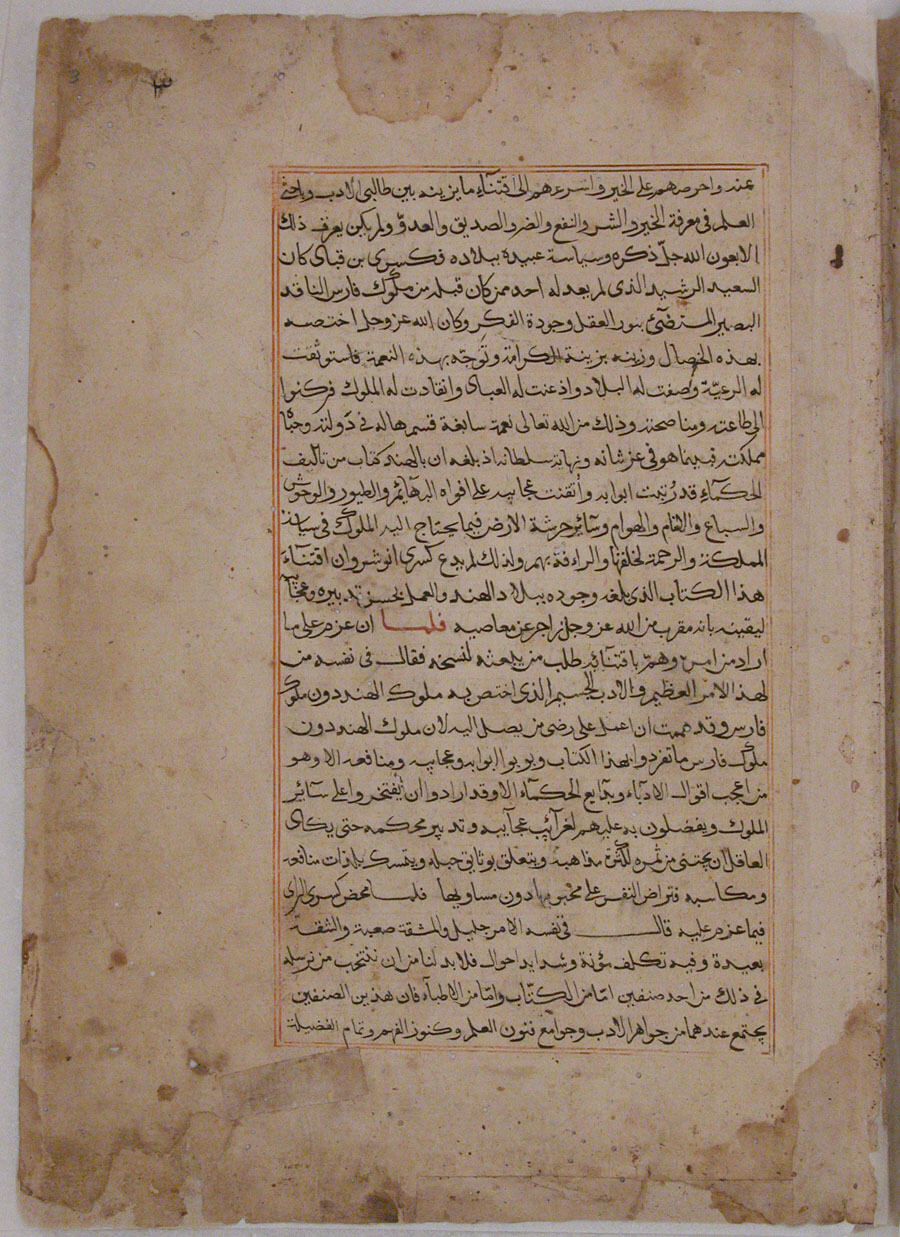 عنه واحرصهم على الخير واسرعهم الى اقتنآء ما يزينه بين طالبى الادب وباغى
العلم فى معرفة الخير والشر والنفع والضر والصديق والعدوّ ولم يكن يعرف ذلك
الا بعون الله جلّ ذكره وسياسة عبيده ببلاده فكسرى بن قباى كان
السعيد الرشيد الذى لم يعد له احد ممن كان قبله من ملوك فارس الناقد
البصير المستضئ بنور العقل وجودة الفكر وكان الله عز وجل اختصه
بهذه الخصال وزينه بزينة الكرامة وتوّجه بهذه النعمة فاستوثقت
له الرعيّة وصفت له البلاد واذعنت له العباى وانقادت له الملوك فركنوا
الى طاعته ومناصحته وذلك من الله تعالى نعمة سابغة قسمها له فى دولته
مملكته فبينما هو فى عز شانه ونهاية سلطانه اذ بلغه ان بالهند كتاب من تاليف
الحكمآء قد رُتبت ابوابه وأتقنت عجايبه على افواه البهائم والطيور والوحوش
والسباع والانعام والهوام وسائر حرشة الارض فيما يحتاج اليه الملوك فى سياسة
المملكة والرحمة لخلقها والراءفة بهم ولذلك لم يدع كسرى انوشروان اقتنآء
هذا الكتاب الذى بلغه وجوده ببلاد الهند والعمل بحسن تدبيره وعجايبه
ليقينه بانه مقرب من الله عز وجل زاجر عن معاصيه فلما ان عزم على ما
اراد من امره وهمّ باقتنائه طلب من يبعثه لنسخه فقال فى نفسه من
لهذا الامر العظيم والادب الجسيم الذى اختص به ملوك الهند دون ملوك
فارس وقد هممت ان اعمل على رضى من يصل اليه لان ملوك الهند دون
ملوك فارس ما تفردوا بهذا الكتاب وبوبوا ابوابه وعجايبه ومنافعه الا وهو
من اعجب اقوال الادبآء وبدايع الحكمآء الا وقد ارادوا ان يفتخروا على سآئر
الملوك ويفضلون به عليهم لغرآئب عجآيبه وتدبير محكمه حتى يكاى
العاقل ان يجتنى من ثمره لكثرة مذاهبه ويتعلق بوثايق حبله ويتمسك منافعه
ومكاسبه فتراض النفس على محبوبها دون مساويها فلما محض كسرى الراى
فيما عزم عليه قال فى نفسه الامر جليل والمشقة صعبة والشقة
بعيدة وفيه تكلف مؤنة وشدايد احوال فلا بد لنا من ان ننتخب من نرسله
فى ذلك من احد صنفين امّا من الكتّاب وامّا من الاطبآء فان هذين الصنفين
يجتمع عندهما من جواهر الادب وجوامع فنون العلم وكنوز الفهم وتمام الفضيلة